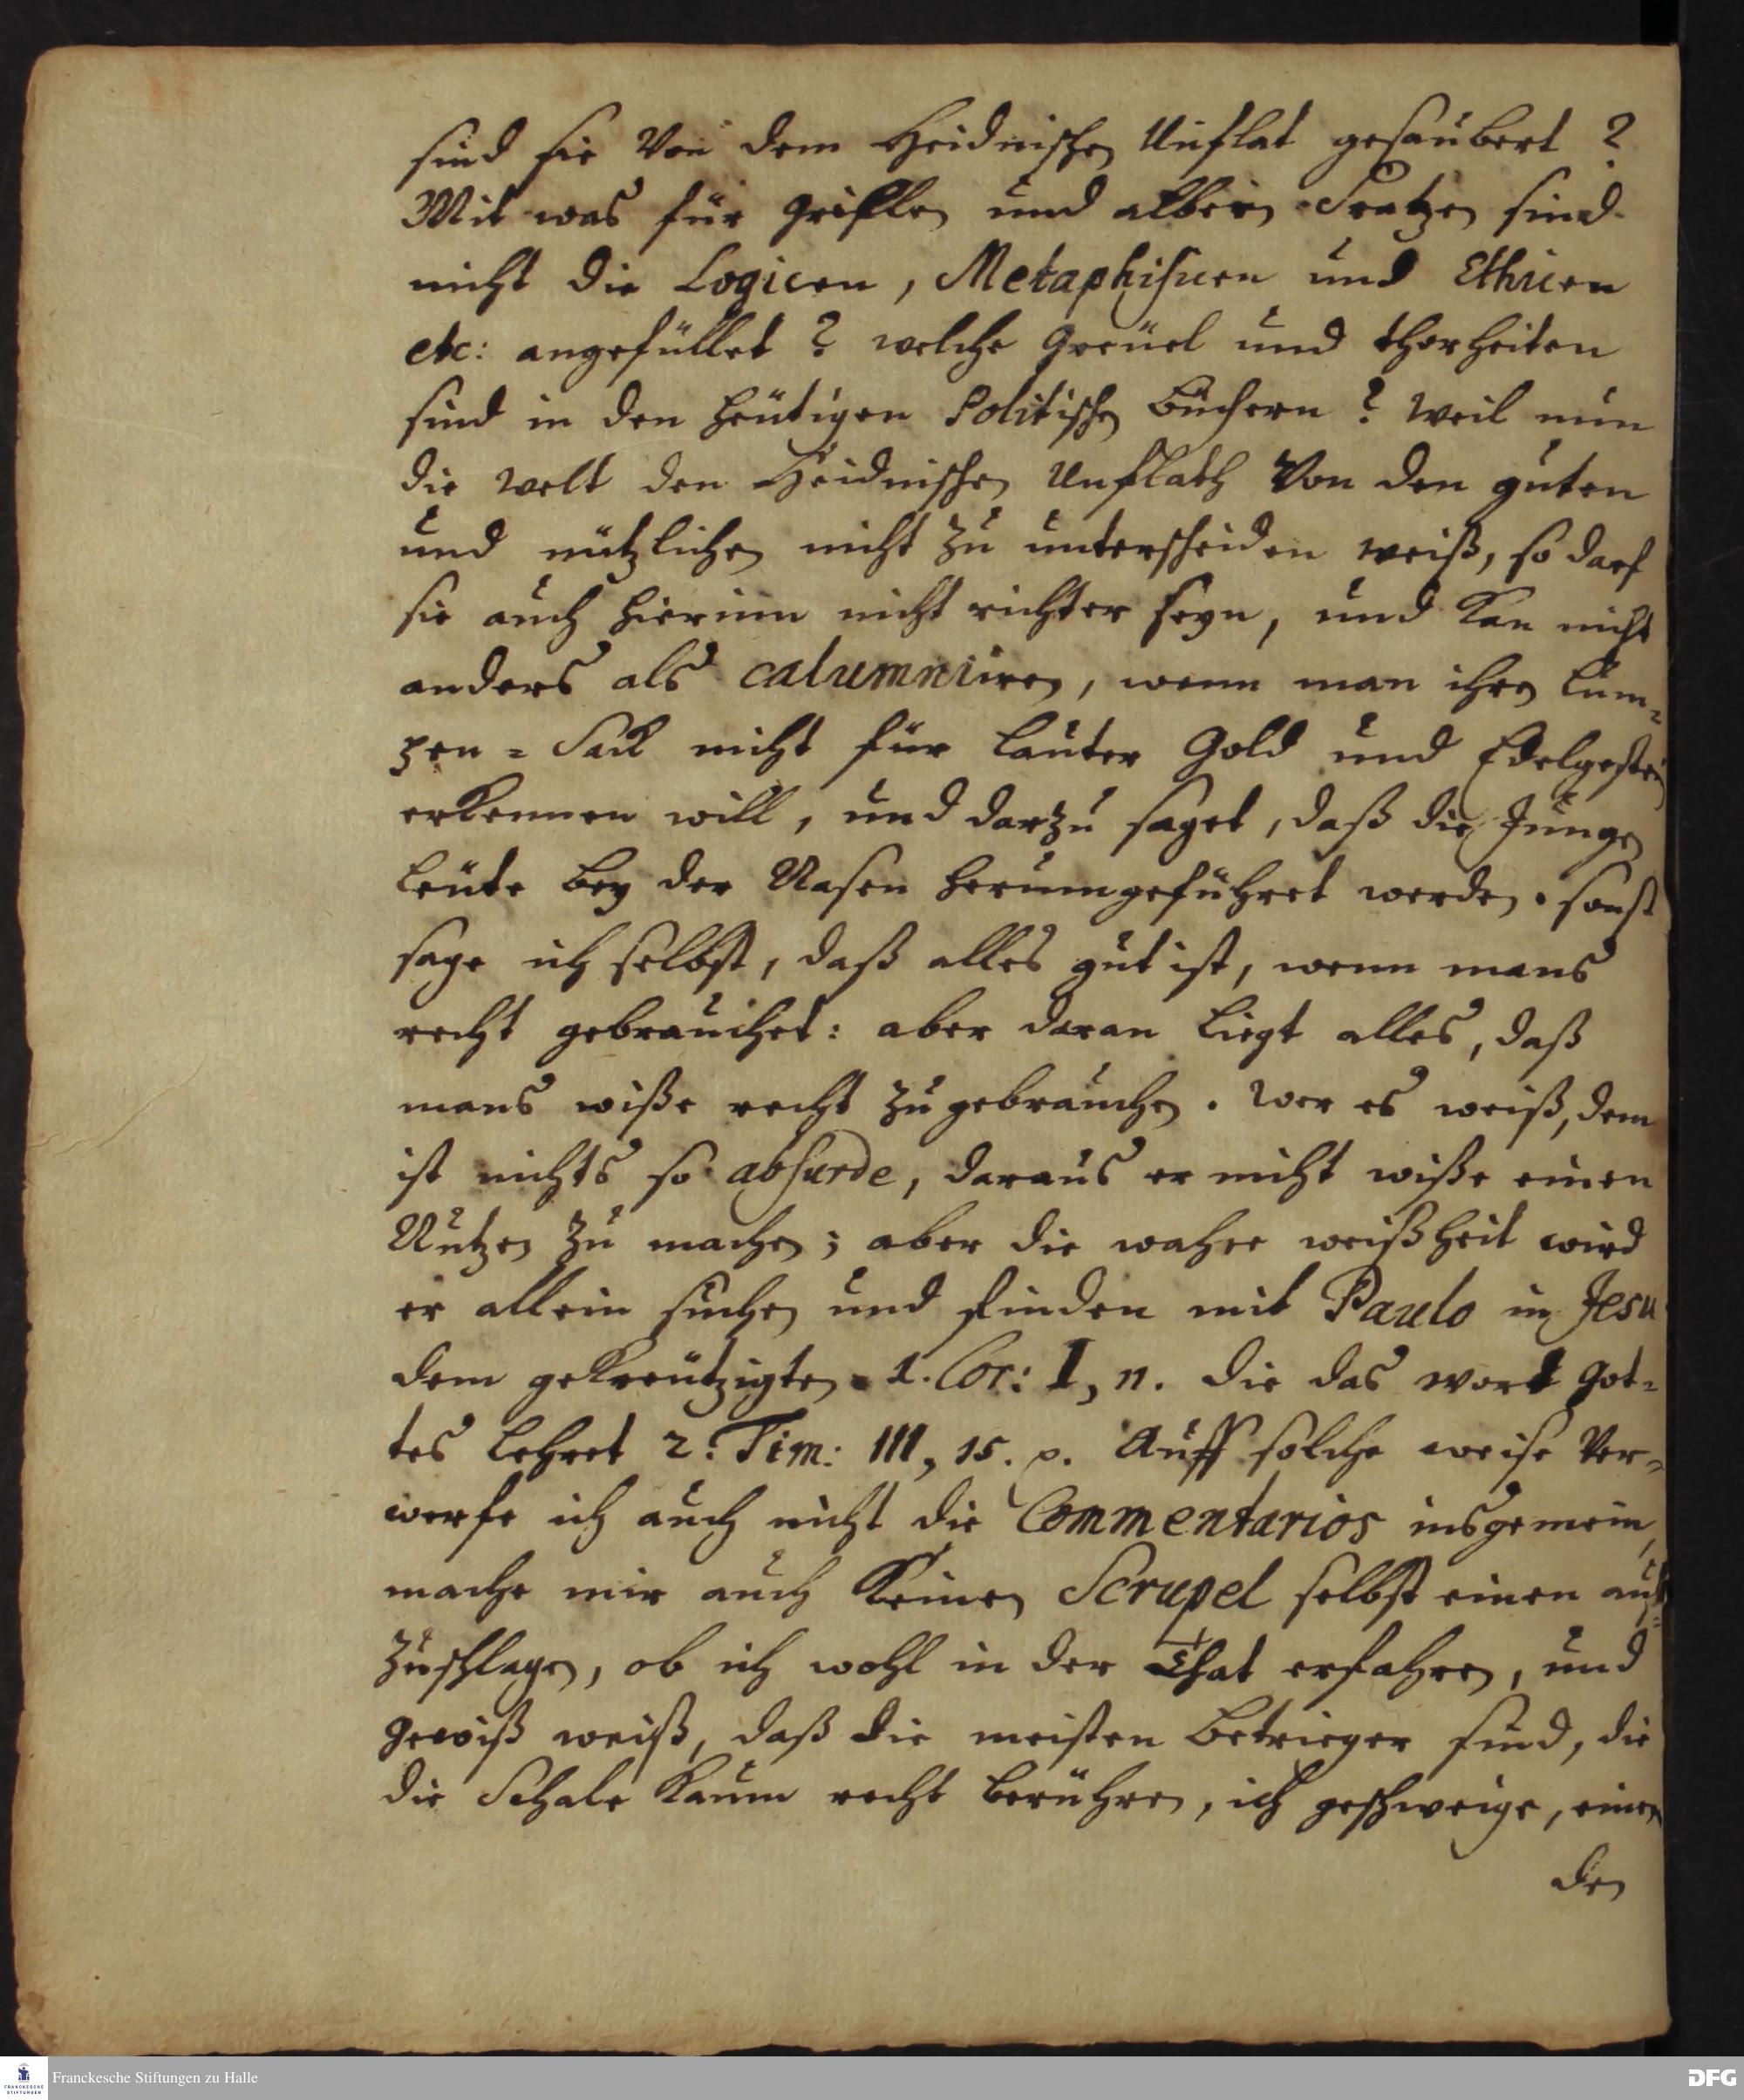 sind sie Von dem Heidnischen Unflat gesaubert ?
Mit was für Grillen und albern Fratzen sind
nicht die Logicen, Metaphisicen und Ethicen
etc: angefüllet ? welche Greüel und thorheiten
sind in den heütigen Politischen büchern ? Weil nun
die Welt den Heidnischen Unflath Von den guten
und nützlichen nicht zu unterscheiden weiß, so darf
sie auch hierinn nicht richter seyn, und Kan nicht
anders als calumniiren, wenn man ihren Lum=
pen=Sack nicht für lauter Gold und Edelgestein
erkennen will, und darzu saget, daß die Jungen
Leüte bey der Nasen herumgeführet werden. sonst
sage ich selbst, daß alles gut ist, wenn mans
recht gebrauchet: aber daran liegt alles, daß
mans wiße recht zu gebrauchen. Wer es weiß, dem
ist nichts so absurde, daraus er nicht wiße einen
Nutzen zu machen; aber die wahre weißheit wird
er allein suchen und finden mit Paulo in Jesu
dem gekreützigten 1. Cor: I, 11. die das wort Got=
tes lehret 2. Tim: III, 15. p. Auff solche weise Ver=
werfe ich auch nicht die Commentarios insgemein,
mache mir auch Keinen Scrupel selbst einen auf=
zuschlagen, ob ich wohl in der That erfahren, und
gewiß weiß, daß die meisten betrieger sind, die
die Schale Kaum recht berühren, ich geschweige, einen
den
Franckesche Stiftungen zu Halle
FRANCKESCHE
STIFTUNGEN
DFG